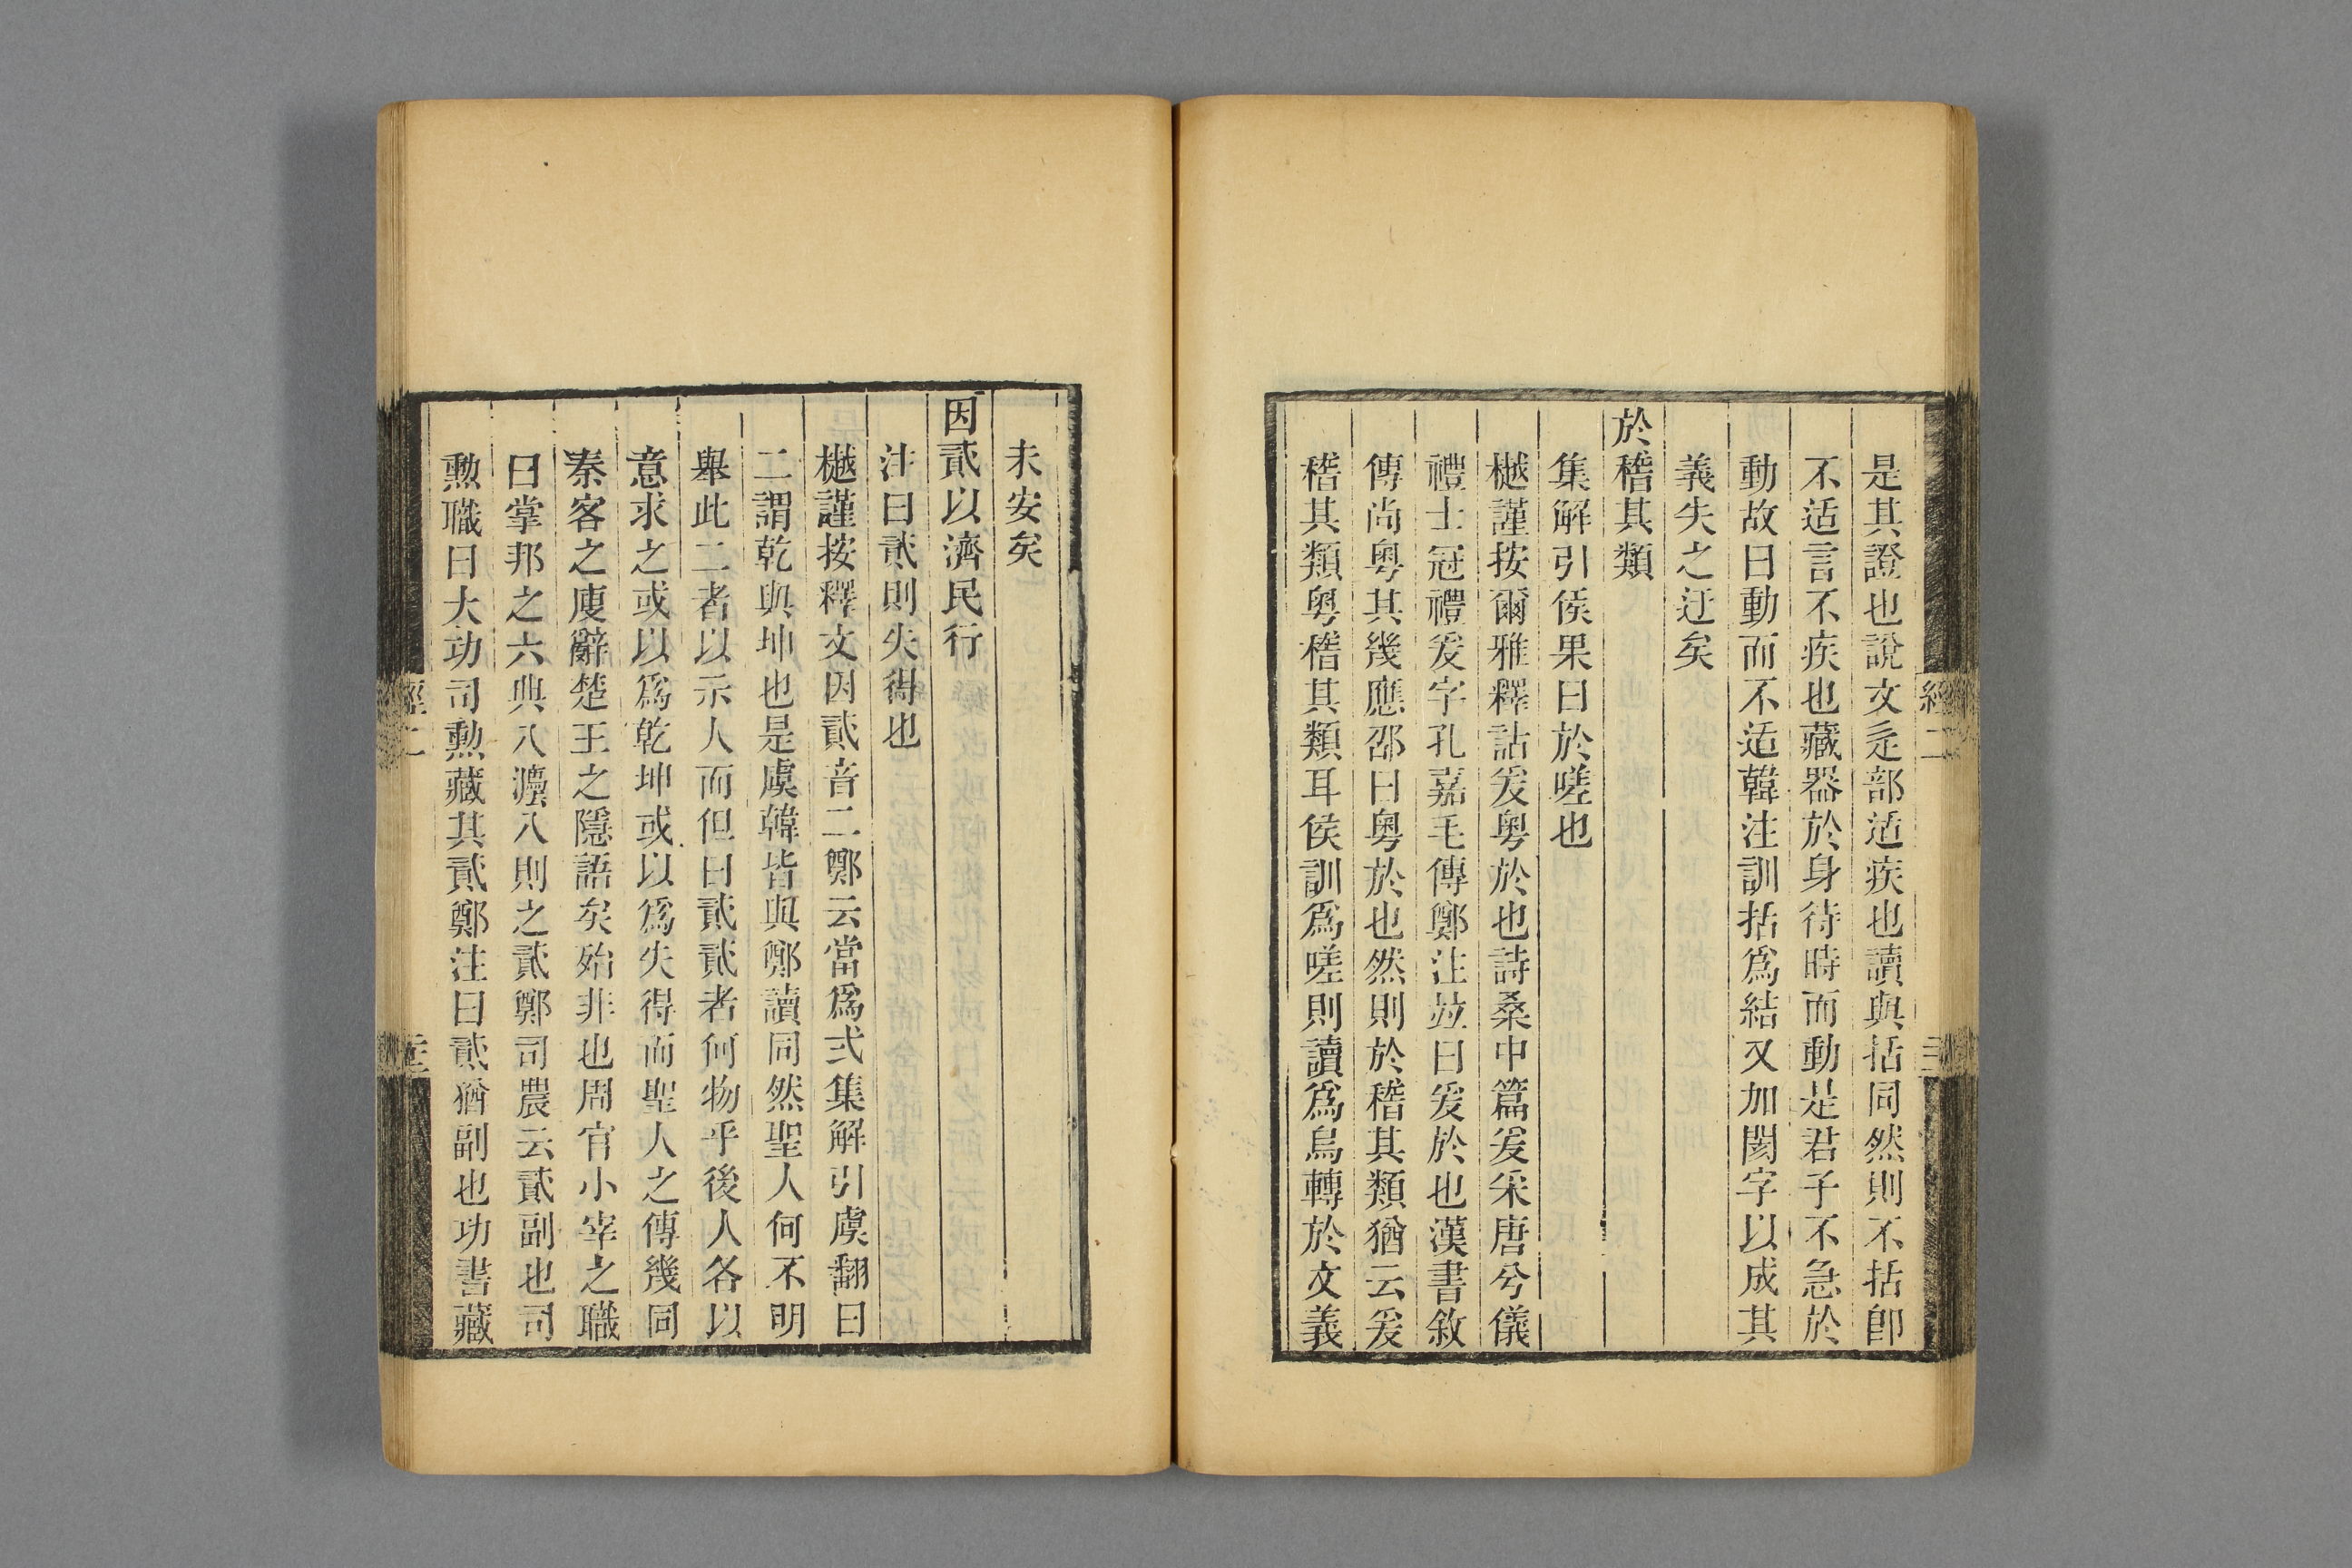 是其證也說文辵部适疾也讀與括同然則不括卽
不适言不疾也藏器於身待時而動是君子不急於
動故曰動而不适韓注訓括爲結又加閡字以成其
義失之迂矣
於稽其類
集解引侯果曰於嗟也
樾謹按爾雅釋詁爰粤於也詩桑中篇爰采唐兮儀
禮士冠禮爰字孔嘉毛傳鄭注竝曰爰於也漢書敘
傳尚粤其幾應邵曰粤於也然則於稽其類猶云爰
稽其類粤稽其類耳侯訓爲嗟則讀爲烏轉於文義
未安矣
因貳以濟民行
注曰貳則失得也
樾謹按釋文因貳音二鄭云當爲弍集解引虞翻曰
二謂乾與坤也是虞韓皆與鄭讀同然聖人何不明
舉此二者以示人而但曰貳貳者何物乎後人各以
意求之或以爲乾坤或以爲失得而聖人之傳幾同
秦客之廋辭楚王之隱語矣殆非也周官小宰之職
曰掌邦之六典八灋八則之貳鄭司農云貳副也司
勲職曰大功司勲藏其貳鄭注曰貳猶副也功書藏
經二